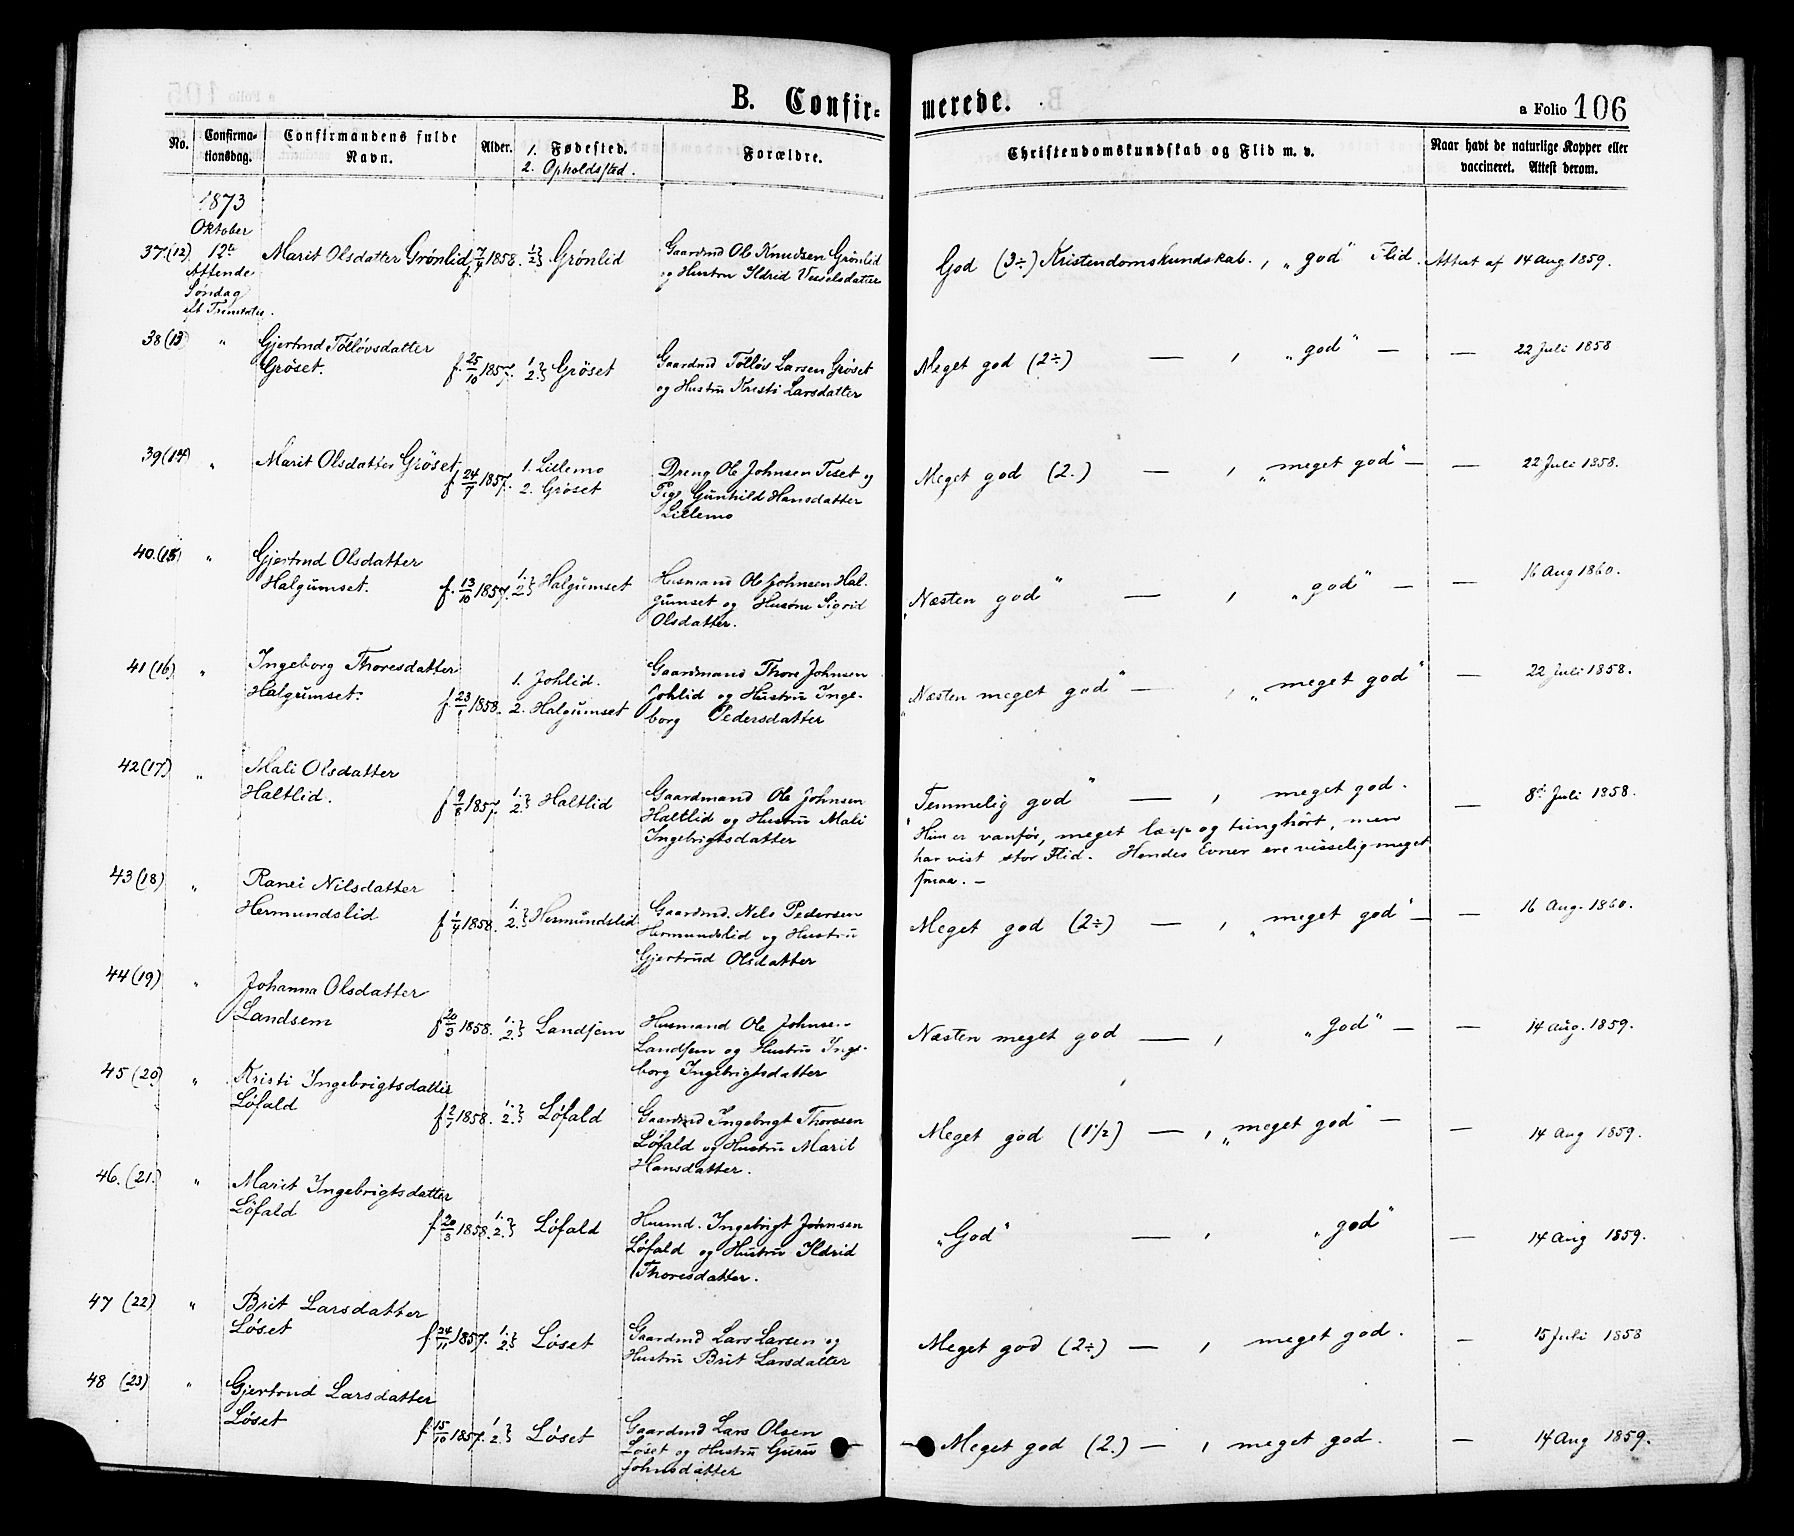 B. Confir-
merede.
a Folio 106
No.
Confirma-
tionsdag.
Confirmandens fulde
Navn.
Alder.
1. Fødested.
2. Opholdssted.
Forældre.
Christendomskundskab og Flid m. v.
Naar havt de naturlige Kopper eller
vaccineret. Attest derom.
1873
Oktober
12te
Søndag
37.(12)
Marit Olsdatter Grönlid
f 7/9 1858.
1. 2.} Grönlid
Gaardmd Ole Knudsen Grönlid
og Hustru Ildrid Vesselsdatter
God (3÷) Kristendomskundskab. , „god" Flid.
Attest af 14 Aug. 1859.
38 (13)
"
Gjertrud Tölløvsdatter
Gröset.
f. 25/10 1857.
1. 2.} Gröset
Gaardmd Tölløv Larsen Gröset
og Hustru Kristi Larsdatter
Meget god (2÷) — , „god" —
— 22 Juli 1858
39 (14)
"
Marit Olsdatter Gröset
f 24/9 1857.
1. Lillemo
2. Gröset
Dreng Ole Johnsen Teset og
Pige Gunhild Hansdatter
Lillemo
Meget god (2.) — , „meget god" —
— 22 Juli 1858.
40.(15)
"
Gjertrud Olsdatter
Halgumset.
f. 13/10 1857.
1. 2.} Halgumset
Husmand Ole Johnsen Hal-
gumset og Sigrid
Olsdatter.
„Næsten god" — , „god" —
— 16 Aug 1860.
41 (16)
"
Ingeborg Thoresdatter
Halgumset.
f. 23/1 1858.
1. Johlid.
2. Halgumset
Gaardmand Thore Johnsen
Johlid og Hustru Inge-
borg Pedersdatter
„Næsten meget god" — , „meget god"
— 22 Juli 1858.
42 (17)
"
Mali Olsdatter
Haltlid.
f 9/8 1857.
1. 2.} Haltlid
Gaardmand Ole Johnsen
Haltlid og Hustru Mali
Ingebrigtsdatter
„Temmelig god" — , meget god.
Hun er vanför, meget læsp og tunghört, men
har vist stor Flid. Hendes Evner ere visselig meget
smaa. —
— 8de Juli 1858.
43 (18)
"
Ranei Nilsdatter
Hermundslid
f 1/4 1858.
1. 2.} Hermundslid
Gaardmd. Nels Pedersen
Hermundslid og Hustru
Gjertrud Olsdatter
Meget god (2÷) — , „meget god" —
— 16 Aug. 1860.
44 (19)
"
Johanna Olsdatter
Landsem
f 20/3 1858.
1. 2.} Landsem
Husmand Ole Johnsen
Landsem og Hustru Inge-
borg Ingebrigtsdatter
Næsten meget god — , „god" —
— 14 Aug. 1859.
45 (20)
"
Kristi Ingebrigtsdatter
Löfald
f 2/7 1858.
1. 2.} Löfald
Gaardmd Ingebrigt Thoresen
Löfald og Hustru Marit
Hansdatter.
Meget god (1½) — , „meget god" —
— 14 Aug 1859.
46. (21.)
"
Marit Ingebrigtsdatter
Löfald
f. 20/3 1858.
1. 2.} Löfald
Husmd. Ingebrigt Johnsen
Löfald og Hustru Ildrid
Thoresdatter.
„God" — , „god"
— 14 Aug 1859.
47 (22)
"
Brit Larsdatter
Löset
f 24/11 1857.
1. 2.} Löset
Gaardmd Lars Larsen og
Hustru Brit Larsdatter
Meget god (2÷) — , meget god.
— 15 Juli 1858
48 (23)
"
Gjertrud Larsdatter
Löset
f. 15/10 1857.
1 2.} Löset
Gaardmd Lars Olsen
Löset og Hustru Guru
Johnsdatter
Meget god (2.) — , meget god.
— 14 Aug 1859.